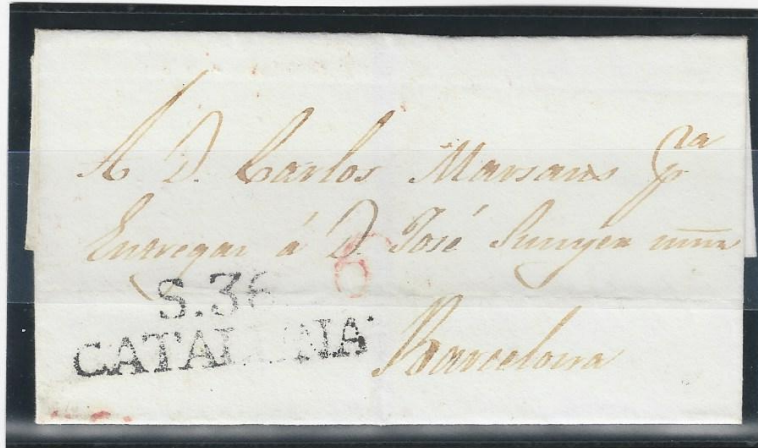 A D. Carlos Marsans pra
Entregar á D. José Sunyer
6
S.38
CATALUNA
Barcelona